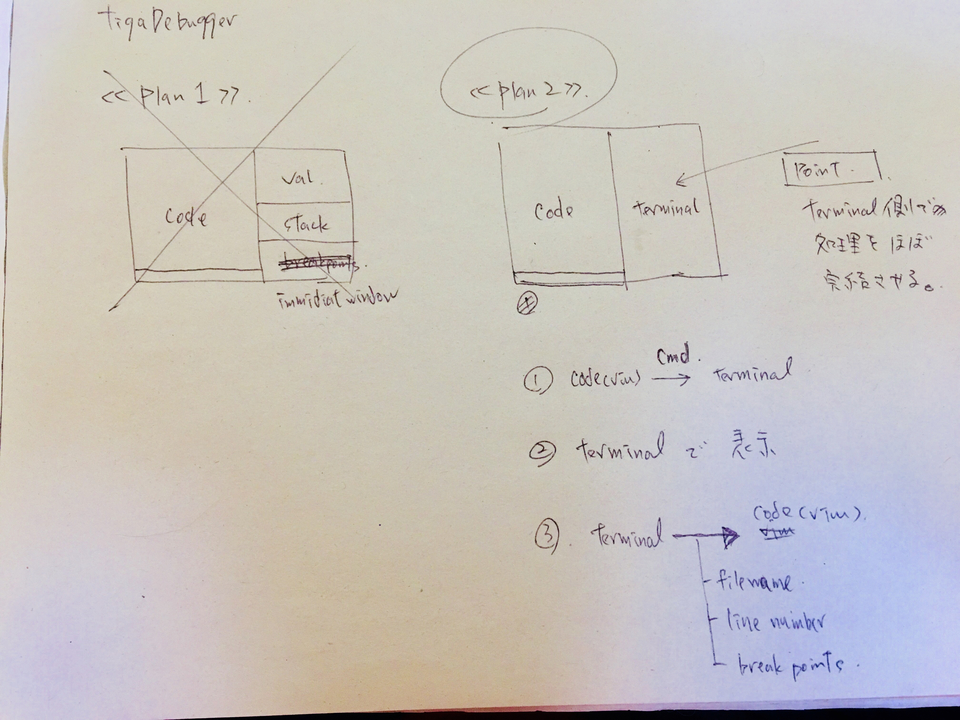 tigaDebugger
<< plan 1 >>.
code
val.
stack
breakpoints.
immidiat window
<< plan 2 >>.
code
terminal
point.
terminal 側での
処理をほぼ
完結させる。
① code(vim) → terminal
cmd.
② terminal で 表示
③. terminal → code(vim).
vim
- filename.
- line number
- break points.